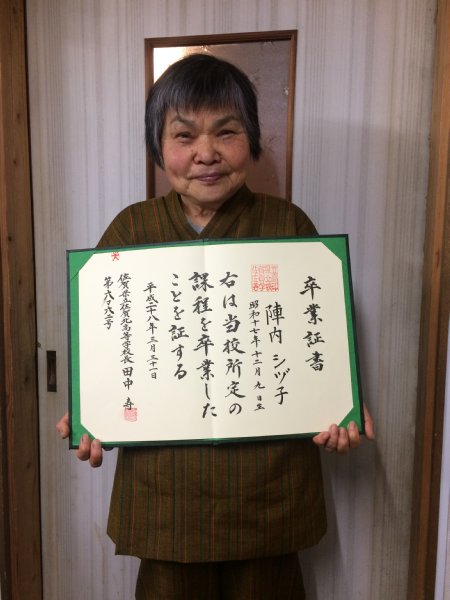 卒業証書
陣内 シヅ子
昭和十七年十二月九日生
右は当校所定の
課程を卒業した
ことを証する
平成二十八年三月三十一日
佐賀県立佐賀北高等学校長 田中 寿